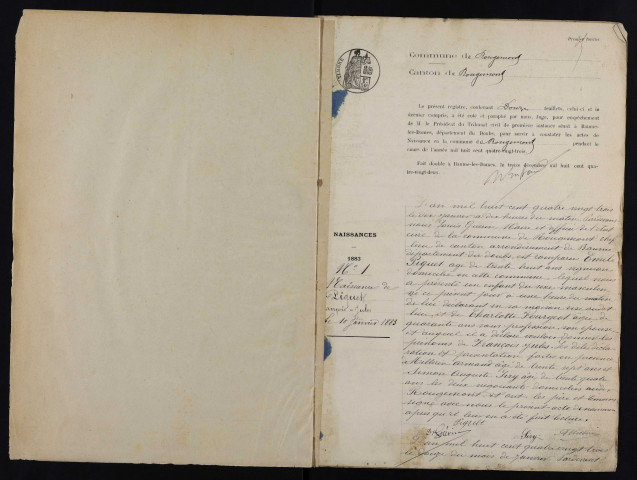 Commune de Rougemont
Canton de Rougemont
Le présent registre, contenant Douze feuillets, celui-ci et le
dernier compris, a été coté et paraphé par nous, Juge, pour empêchement
de M. le Président du Tribunal civil de première instance séant à Baume-
les-Dames, département du Doubs, pour servir à consigner les actes de
Naissance de la commune de Rougemont pendant le
cours de l'année mil huit cent quatre-vingt-trois.
Fait double à Baume-les-Dames, le treize décembre mil huit cent qua-
tre-vingt-deux.
NAISSANCES
1883
N° 1
Naissance de
Piquet
François Jules
le 10 Janvier 1883
L'an mil huit cent quatre vingt trois
le dix janvier à dix heures du matin Pardevant
nous Louis Maire et officier de l'état
civil de la commune de Rougemont chef
lieu de canton arrondissement de Baume
département du Doubs est comparu Emile
Piquet âgé de trente huit ans
domicilié en cette commune lequel nous
a présenté un enfant du sexe masculin
né ce présent jour à une heure du matin
de lui déclarant en sa maison en cedit
lieu et de Charlotte
quarante ans sans profession son épouse
et auquel il a déclaré vouloir donner les
prénoms de François Jules les dites décla-
ration et présentation faites en présence
de armand âgé de trente sept ans et
Simon Auguste Pery âgé de trente quatre
ans les deux domiciliés audit
Rougemont et ont les père et témoins
signé avec nous le présent acte de naissance
après qu'il leur en a été fait lecture.
Piquet
Pery
L'an mil huit cent quatre vingt trois
le du mois de Janvier Pardevant